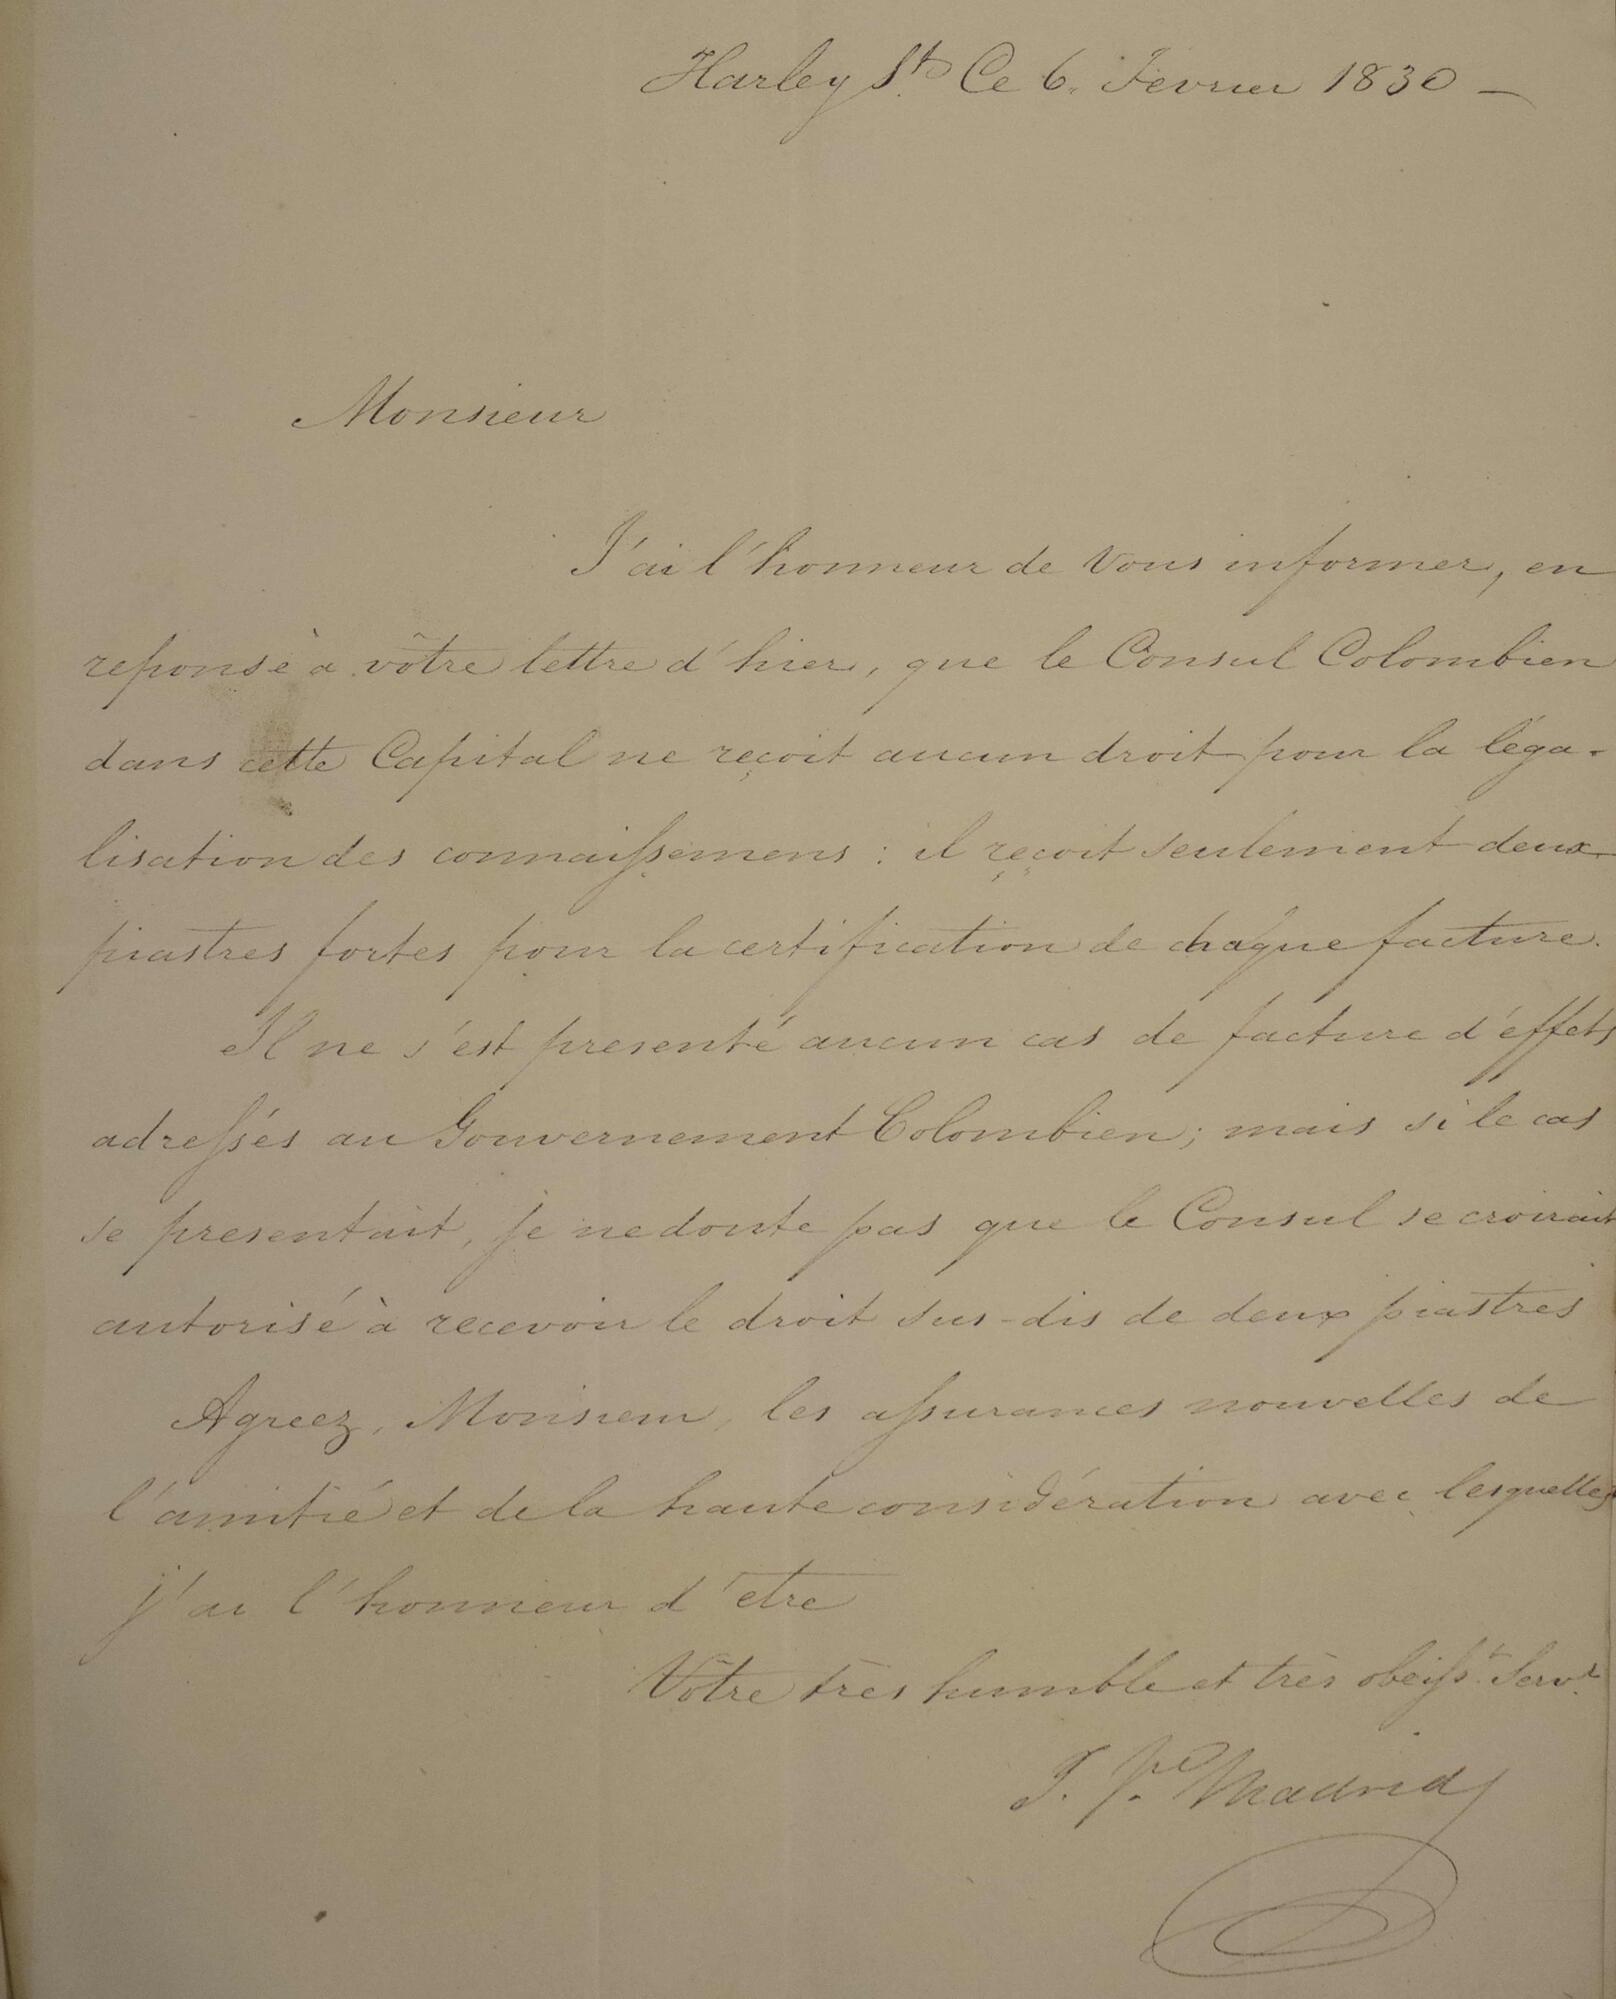 Harley St. Ce 6. Fevrier 1830 —
Monsieur
J'ai l'honneur de Vous informer, en
reponse à vôtre lettre d'hier, que le Consul Colombien
dans cette Capital ne reçoit aucun droit pour la léga-
lisation des connaissemens : il reçoit seulement deux
piastres fortes pour la certification de chaque facture.
Il ne s'est presenté aucun cas de facture d'effets
adressés au Gouvernement Colombien; mais si le cas
se presentait, je ne doute pas que le Consul se croirait
autorisé à recevoir le droit sus-dis de deux piastres
Agreez, Monsieur, les assurances nouvelles de
l'amitié et de la haute considération avec lesquelles
j'ai l'honneur d'etre
Vôtre très humble et très obeisst. Servt.
J. F. Madrid